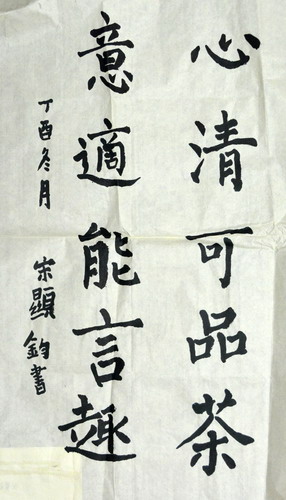 心清可品茶
意適能言趣
丁酉冬月
宋顯鈞書